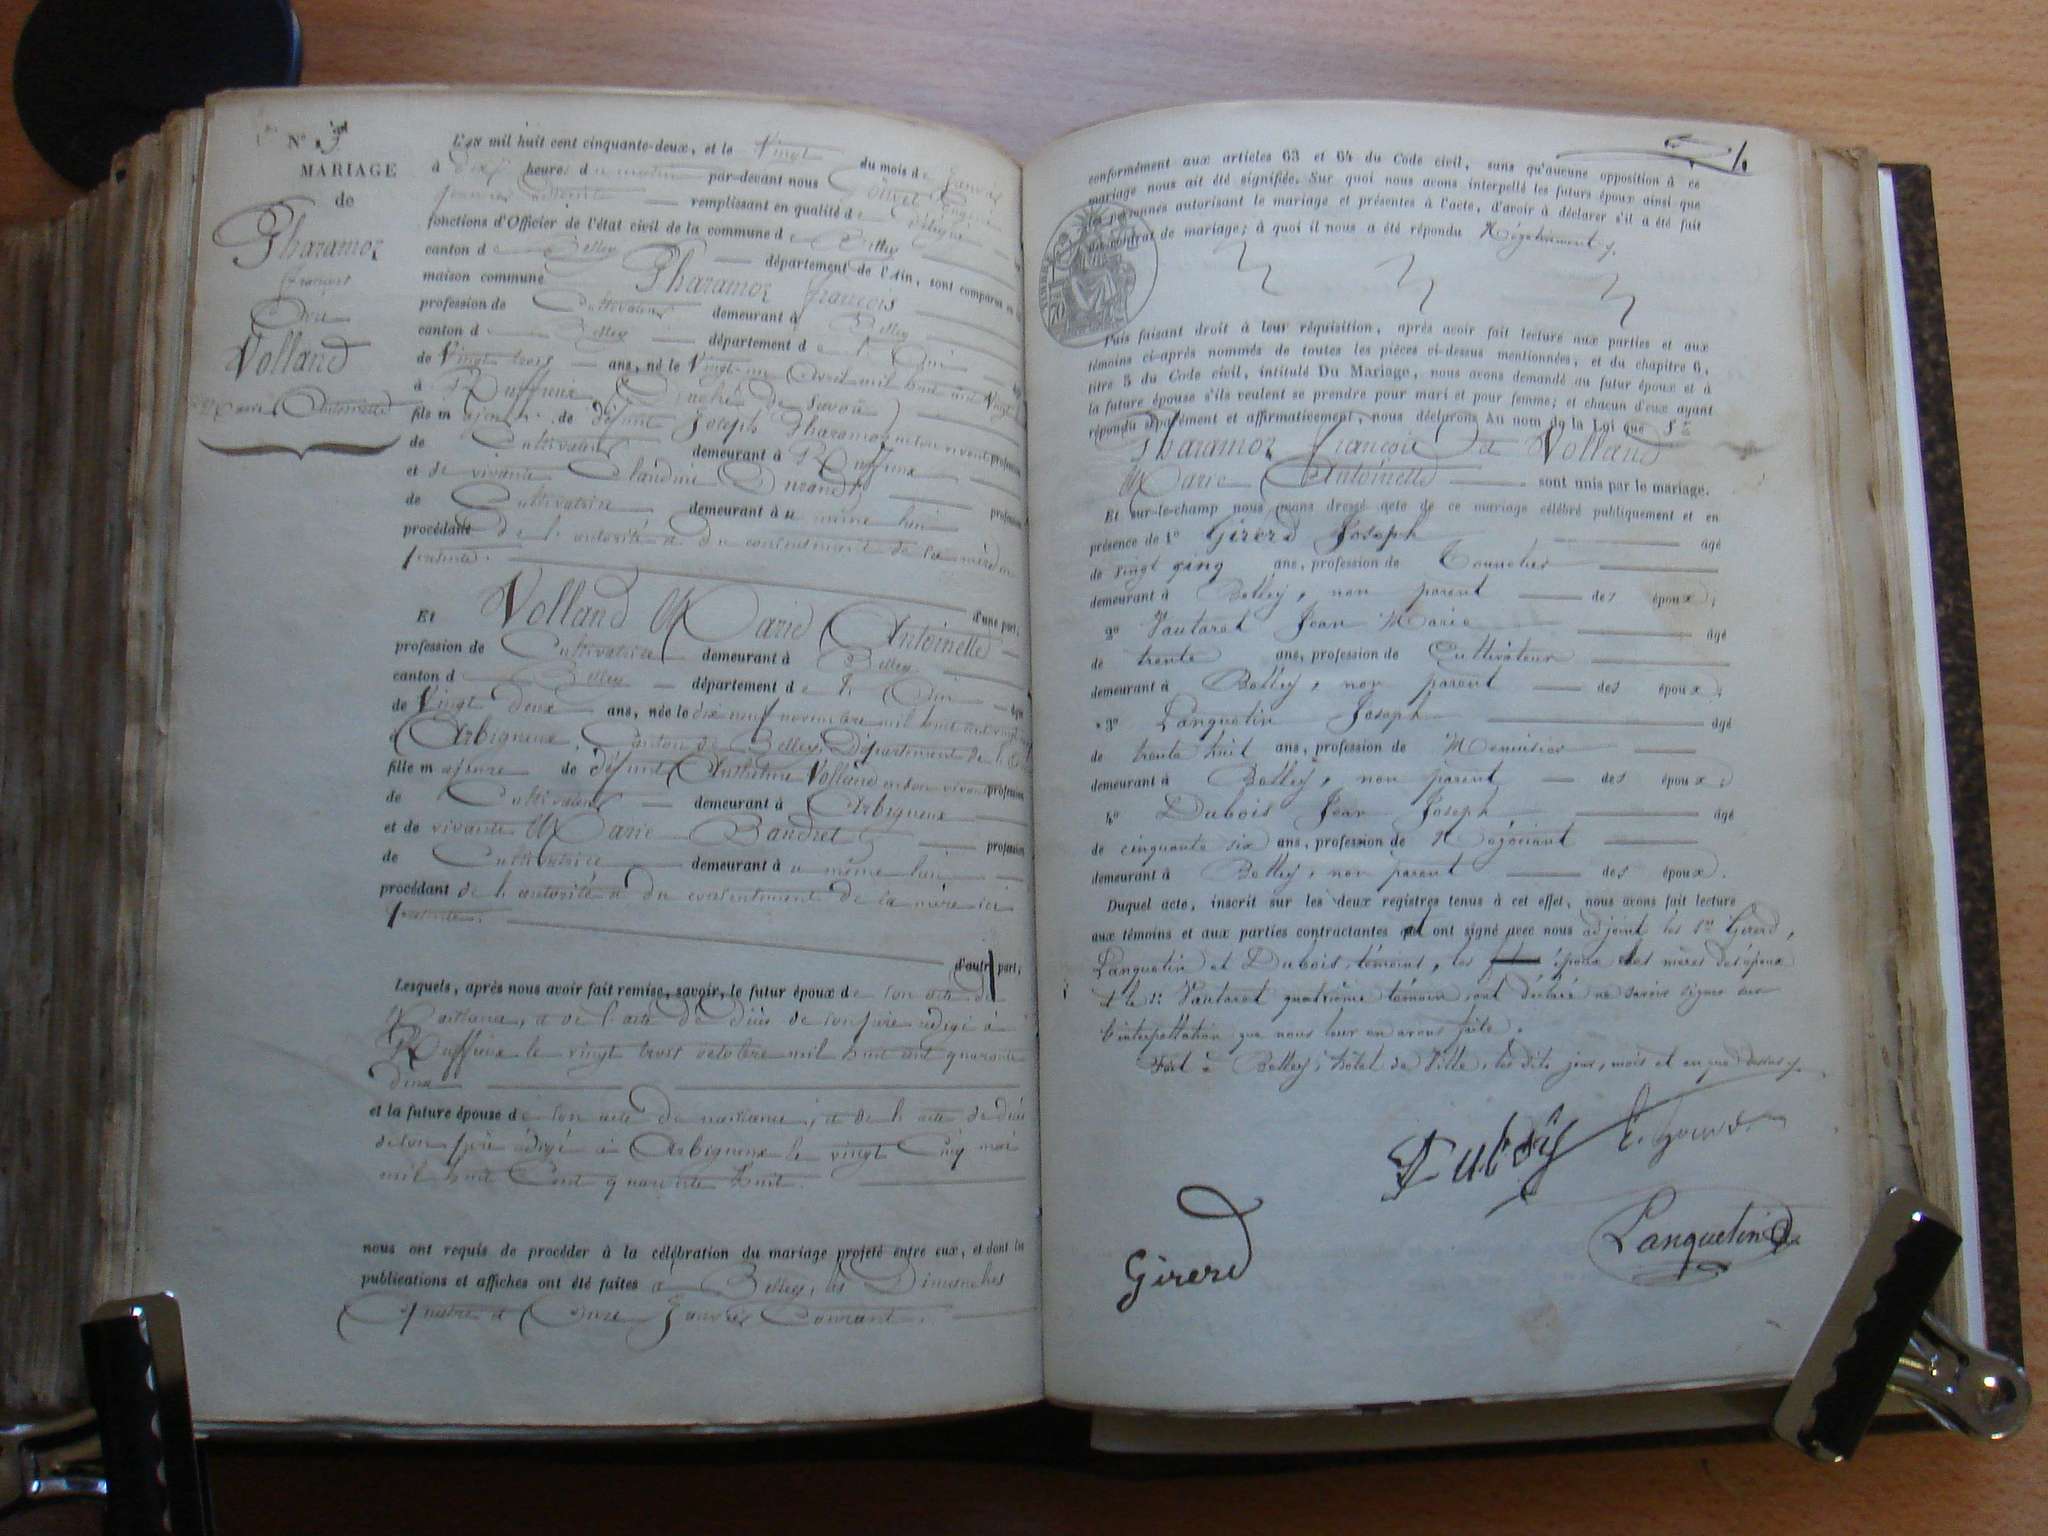 N° 3
MARIAGE
de
Pharamoz
François
Et
Volland
Marie Antoinette
L'an mil huit cent cinquante-deux, et le Vingt du mois de Janvier
à dix heures du matin par-devant nous
remplissant en qualité de
fonctions d'Officier de l'état civil de la commune de Belley
canton de Belley département de l'Ain, sont comparus en la
maison commune Pharamoz François
profession de Cultivateur demeurant à Belley
canton de Belley département de l'Ain âgé
de Vingt trois ans, né le Vingt un Avril mil huit cent Vingt
à Ruffieux (Duché de Savoie)
fils majeur de défunt Joseph Pharamoz en son vivant profession
de Cultivateur demeurant à Ruffieux
et de vivante Claudine Durand profession
de Cultivatrice demeurant au même lieu
procédant de l'autorité et du consentement de sa mère ici
présente.
d'une part;
Et Volland Marie Antoinette
profession de Cultivatrice demeurant à Belley
canton de Belley département de l'Ain âgée
de Vingt deux ans, née le dix neuf novembre mil huit cent vingt
à Arbignieux, Canton de Belley, Département de l'Ain
fille majeure de défunt Anthelme Volland en son vivant profession
de Cultivateur demeurant à Arbignieux
et de vivante Marie Baudret profession
de Cultivatrice demeurant au même lieu
procédant de l'autorité et du consentement de sa mère ici
présente.
d'autre part;
Lesquels, après nous avoir fait remise, savoir, le futur époux de son acte de
Naissance, et de l'acte de décès de son père rédigé à
Ruffieux le vingt trois octobre mil huit cent quarante
deux
et la future épouse de son acte de naissance, et de l'acte de décès
de son père rédigé à Arbignieux le vingt Cinq mai
mil huit Cent quarante huit.
nous ont requis de procéder à la célébration du mariage projeté entre eux, et dont les
publications et affiches ont été faites à Belley, les Dimanches
Quatre et Onze Janvier Courant.
conformément aux articles 63 et 64 du Code civil, sans qu'aucune opposition à ce
mariage nous ait été signifiée. Sur quoi nous avons interpellé les futurs époux ainsi que
les personnes autorisant le mariage et présentes à l'acte, d'avoir à déclarer s'il a été fait
un contrat de mariage; à quoi il nous a été répondu Négativement
TIMBRE
Puis faisant droit à leur réquisition, après avoir fait lecture aux parties et aux
témoins ci-après nommés de toutes les pièces ci-dessus mentionnées, et du chapitre 6,
titre 5 du Code civil, intitulé Du Mariage, nous avons demandé au futur époux et à
la future épouse s'ils veulent se prendre pour mari et pour femme; et chacun d'eux ayant
répondu séparément et affirmativement, nous déclarons Au nom de la Loi que
Pharamoz François et Volland
Marie Antoinette sont unis par le mariage.
Et sur-le-champ nous avons dressé acte de ce mariage célébré publiquement et en
présence de 1° Girerd Joseph âgé
de vingt cinq ans, profession de Tonnelier
demeurant à Belley, non parent des époux;
2° Vautaret Jean Marie âgé
de trente ans, profession de Cultivateur
demeurant à Belley, non parent des époux;
3° Lanquetin Joseph âgé
de trente huit ans, profession de Menuisier
demeurant à Belley, non parent des époux;
4° Dubois Jean Joseph âgé
de cinquante six ans, profession de Négociant
demeurant à Belley, non parent des époux.
Duquel acte, inscrit sur les deux registres tenus à cet effet, nous avons fait lecture
aux témoins et aux parties contractantes qui ont signé avec nous adjoint les Srs Girerd,
Lanquetin et Dubois témoins, les époux et les mères des époux
et le Sr Vautaret quatrième témoin ont déclaré ne savoir signer sur
l'interpellation que nous leur en avons faite.
Fait à Belley, hôtel de Ville, les dits jour, mois et an que dessus.
Duboÿ
Lanquetin
Girerd